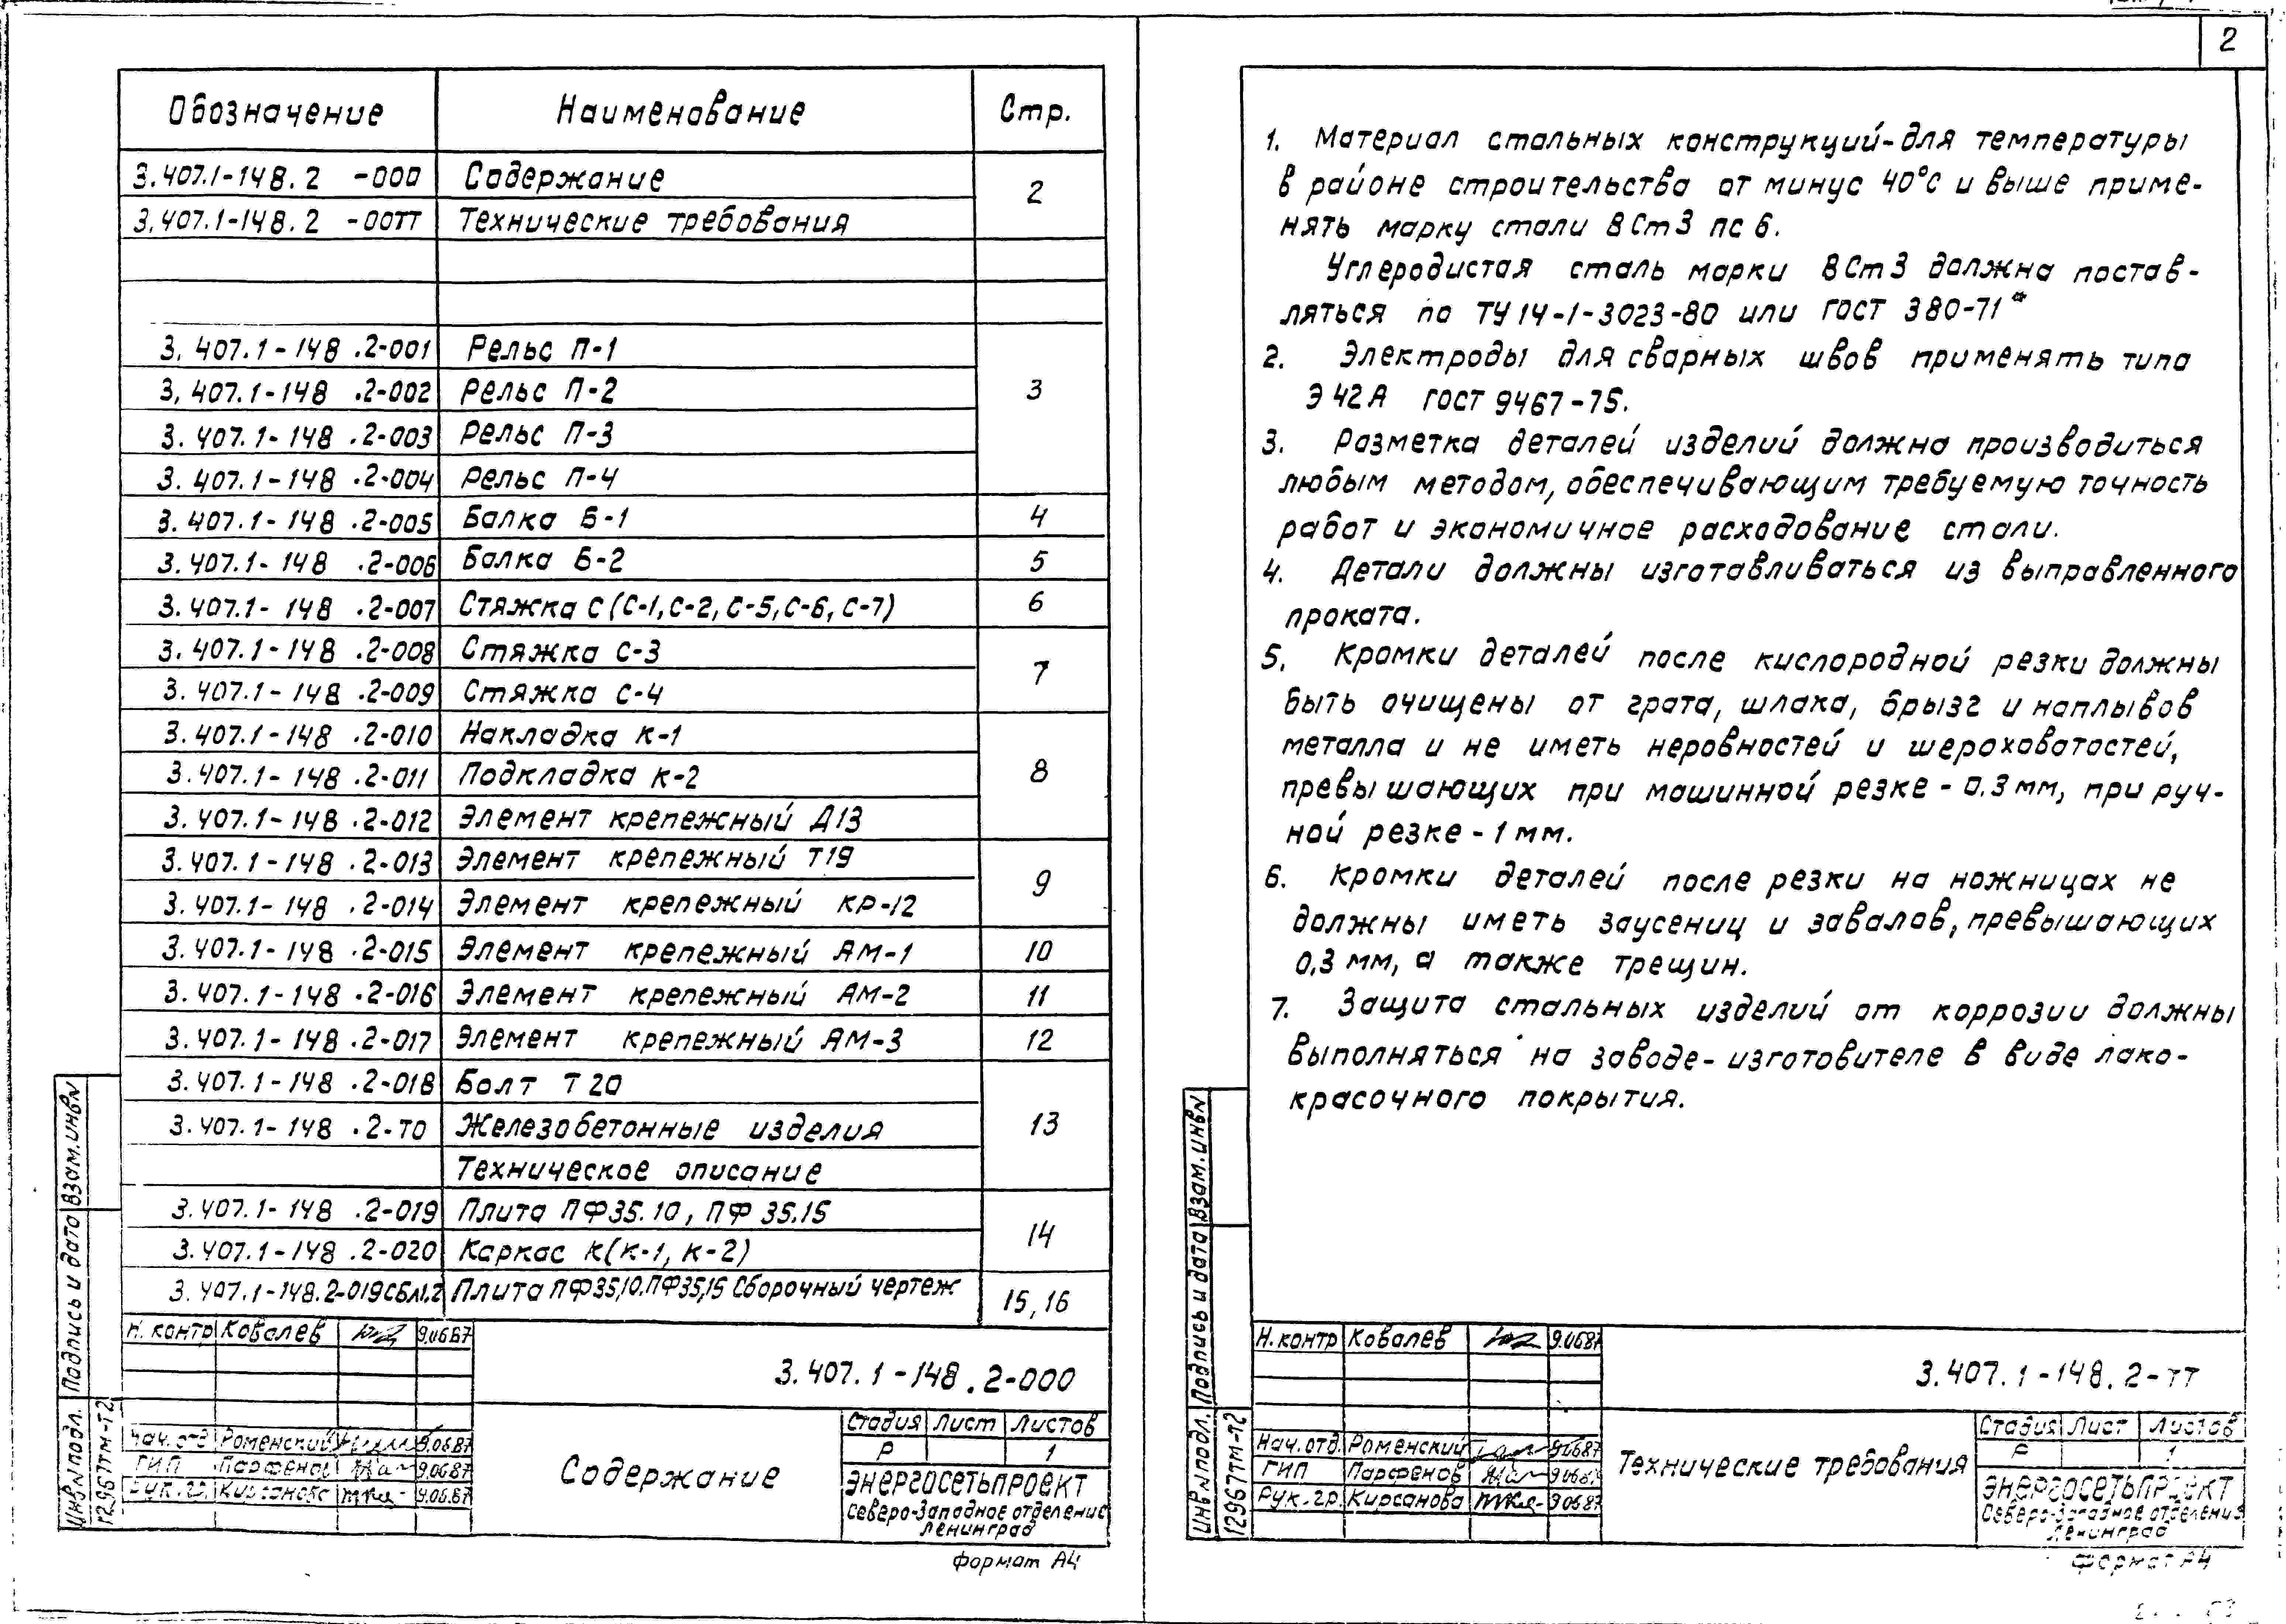 2
Обозначение Наименование Стр.
3.407.1-148.2 -000 Содержание 2
3.407.1-148.2 -00ТТ Технические требования
3.407.1-148.2-001 Рельс П-1 3
3.407.1-148.2-002 Рельс П-2
3.407.1-148.2-003 Рельс П-3
3.407.1-148.2-004 Рельс П-4
3.407.1-148.2-005 Балка Б-1 4
3.407.1-148.2-006 Балка Б-2 5
3.407.1-148.2-007 Стяжка С (С-1, С-2, С-5, С-6, С-7) 6
3.407.1-148.2-008 Стяжка С-3 7
3.407.1-148.2-009 Стяжка С-4
3.407.1-148.2-010 Накладка К-1 8
3.407.1-148.2-011 Подкладка К-2
3.407.1-148.2-012 Элемент крепежный Д13
3.407.1-148.2-013 Элемент крепежный Т19 9
3.407.1-148.2-014 Элемент крепежный КР-12
3.407.1-148.2-015 Элемент крепежный АМ-1 10
3.407.1-148.2-016 Элемент крепежный АМ-2 11
3.407.1-148.2-017 Элемент крепежный АМ-3 12
3.407.1-148.2-018 Болт Т20 13
3.407.1-148.2-ТО Железобетонные изделия
Техническое описание
3.407.1-148.2-019 Плита ПФ35.10, ПФ 35.15 14
3.407.1-148.2-020 Каркас К(К-1, К-2)
3.407.1-148.2-019СБл1,2 Плита ПФ35,10.ПФ35,15 Сборочный чертеж 15,16
Н. контр Ковалев 9.0687
3.407.1-148.2-000
Нач. отд Роменский 9.0687
ГИП Парфенов 9.0687
Рук. гр. Кирсанова 9.06.87
Содержание
Стадия Лист Листов
Р 1
ЭНЕРГОСЕТЬПРОЕКТ
Северо-Западное отделение
Ленинград
Формат А4
Инв№подл. Подпись и дата Взам.инв№
12967тм-т2
1. Материал стальных конструкций-для температуры
в районе строительства от минус 40°С и выше приме-
нять марку стали ВСт3 пс 6.
Углеродистая сталь марки ВСт3 должна постав-
ляться по ТУ 14-1-3023-80 или ГОСТ 380-71*
2. Электроды для сварных швов применять типа
Э 42А ГОСТ 9467-75.
3. Разметка деталей изделий должна производиться
любым методом, обеспечивающим требуемую точность
работ и экономичное расходование стали.
4. Детали должны изготавливаться из выправленного
проката.
5. Кромки деталей после кислородной резки должны
быть очищены от грата, шлака, брызг и наплывов
металла и не иметь неровностей и шероховатостей,
превышающих при машинной резке - 0.3 мм, при руч-
ной резке - 1 мм.
6. Кромки деталей после резки на ножницах не
должны иметь заусениц и завалов, превышающих
0,3 мм, а также трещин.
7. Защита стальных изделий от коррозии должны
выполняться на заводе-изготовителе в виде лако-
красочного покрытия.
Н. контр Ковалев 9.0687
3.407.1-148.2-ТТ
Нач. отд. Роменский 9.0687
ГИП Парфенов 9.0687
Рук. гр. Кирсанова 9.0687
Технические требования
Стадия Лист Листов
Р 1
ЭНЕРГОСЕТЬПРОЕКТ
Северо-Западное отделение
Ленинград
Формат А4
Инв№подл. Подпись и дата Взам.инв№
12967тм-т2